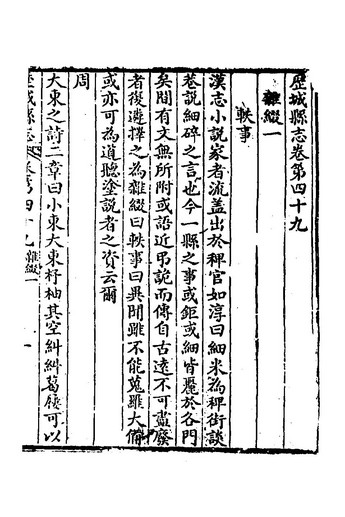 歷城縣志卷第四十九
雜綴一
軼事
漢志小說家者流蓋出於稗官如淳曰細米為稗街談
巷說細碎之言也今一縣之事或鉅或細皆麗於各門
矣間有文無所附或語近弔詭而傳自古遠不可盡廢
者復遴擇之為雜綴曰軼事曰異聞雖不能蒐羅大備
或亦可為道聽塗說者之資云爾
周
大東之詩二章曰小東大東杼柚其空糾糾葛屨可以
歷城縣志 卷第四十九 雜綴一 一